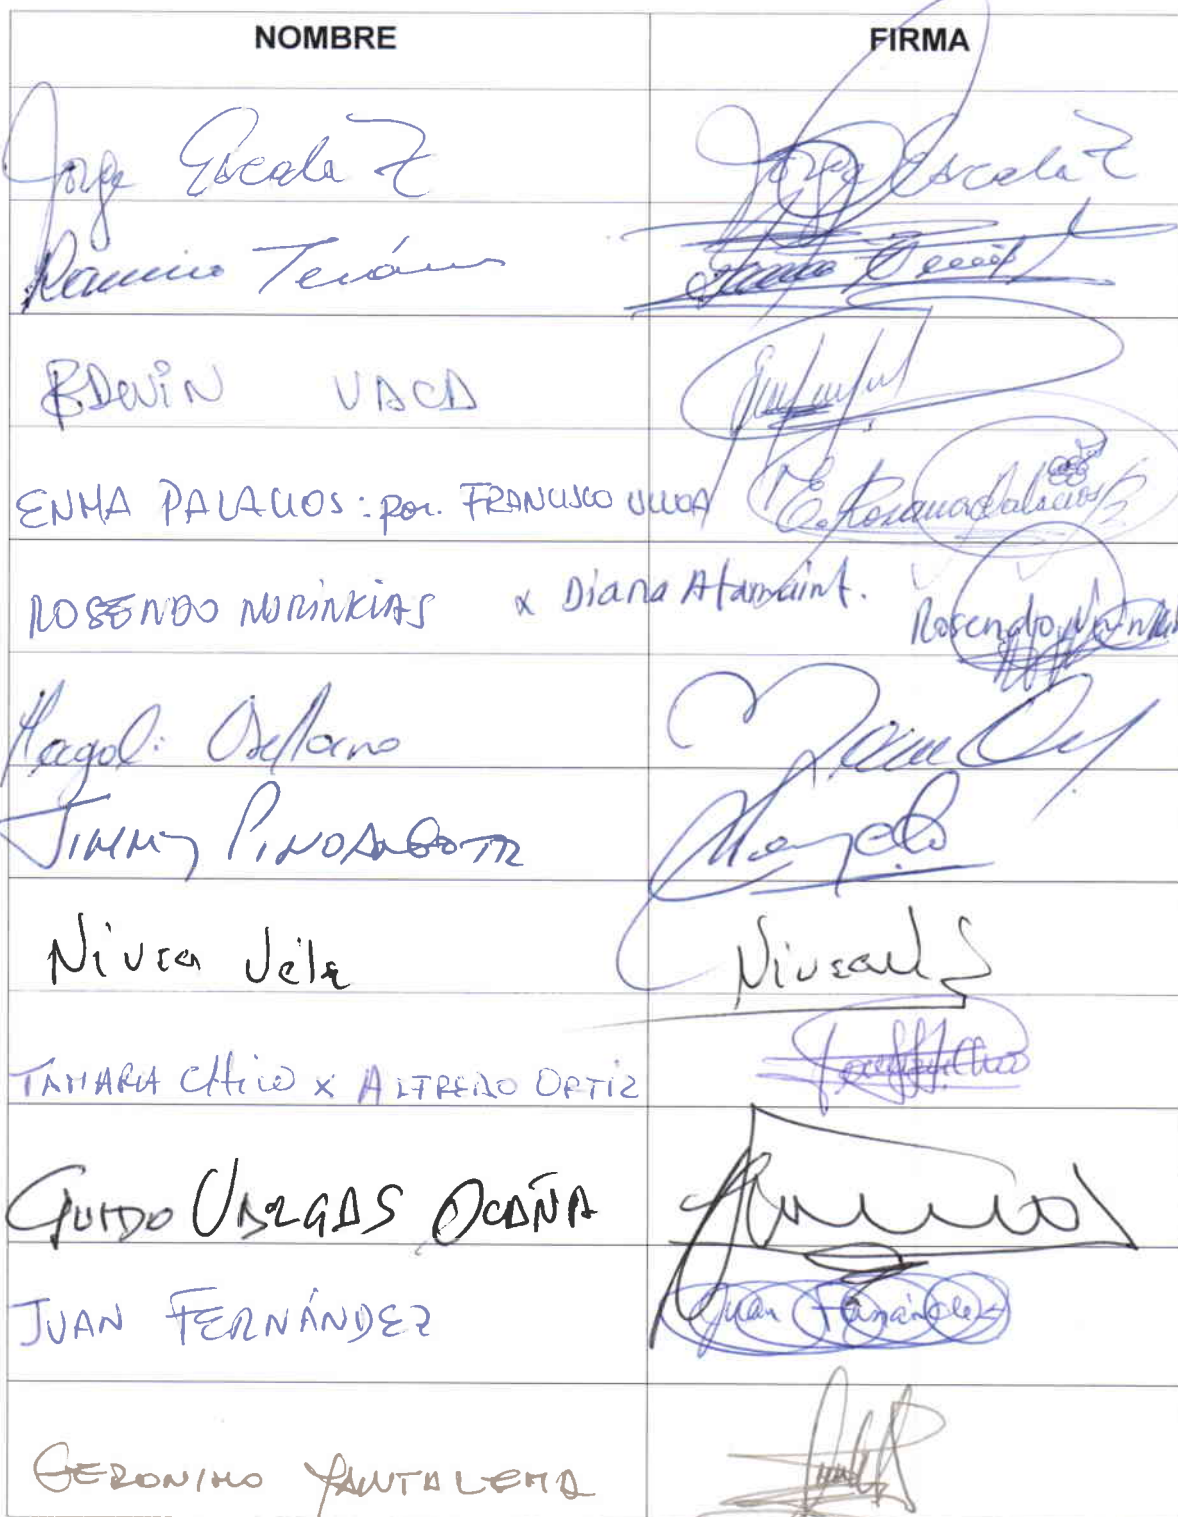 NOMBRE FIRMA
Jorge Escala Z Jorge Escala Z
Ramiro Terán
EDWIN VACA
ENMA PALACIOS: por. FRANCISCO ULLOA E. Rosana Palacios
ROSENDO NURINKIAS x Diana Atamaint. Rosendo Nurinkias
Magali Orellana
JIMMY PINOARGOTE
Nivea Vélez Nivea
TAMARA CHICO x ALFREDO ORTIZ
GUIDO VARGAS OCAÑA
JUAN FERNÁNDEZ Juan Fernández
GERONIMO YANTALEMA